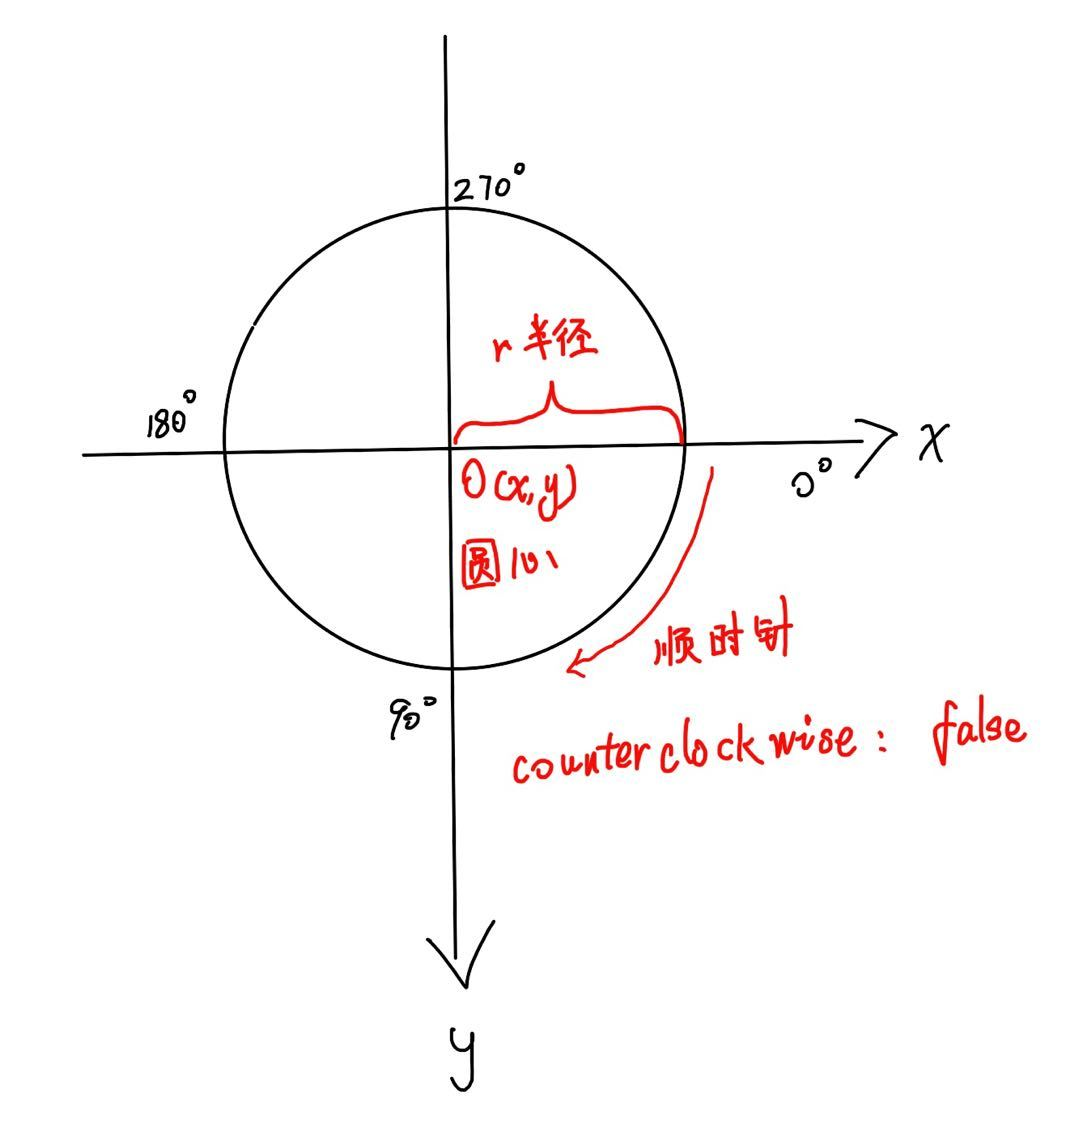 270°
r 半径
180°
x
0°
O(x,y)
圆心
顺时针
90°
counterclockwise: false
y